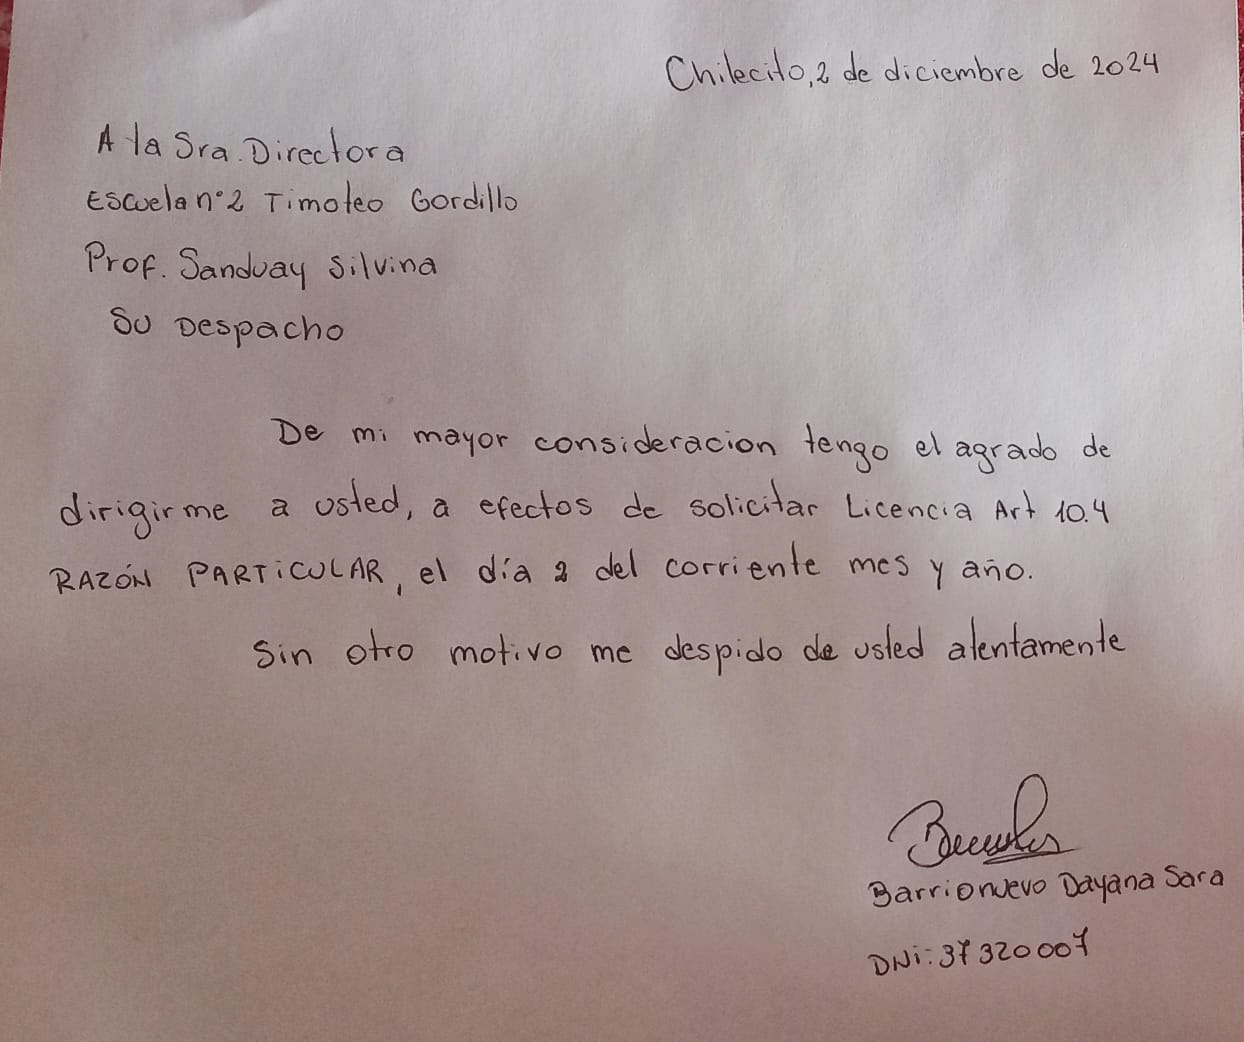 Chilecito, 2 de diciembre de 2024
A la Sra. Directora
Escuela n°2 Timoteo Gordillo
Prof. Sanduay Silvina
Su Despacho
De mi mayor consideracion tengo el agrado de
dirigirme a usted, a efectos de solicitar Licencia Art 10.4
RAZÓN PARTICULAR, el día 2 del corriente mes y año.
Sin otro motivo me despido de usted atentamente
Barrionuevo Dayana Sara
DNi: 37320007